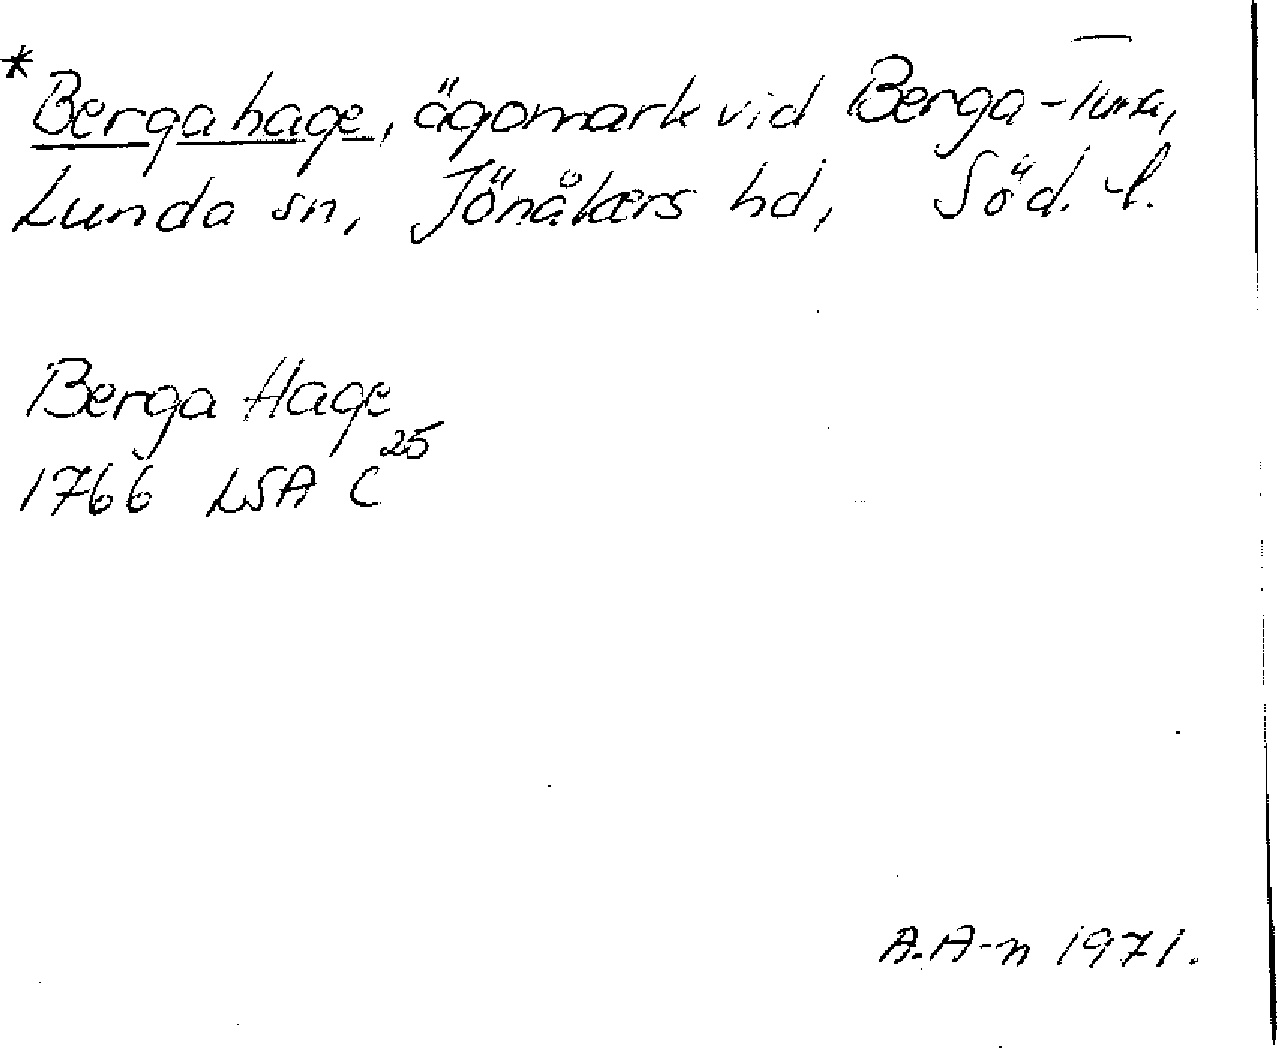 *Bergahage, ägomark vid Berga-tuna,
Lunda sn, Jönåkers hd, Söd. l.
Berga Hage
1766 LSA C 25
A.A-n 1971.